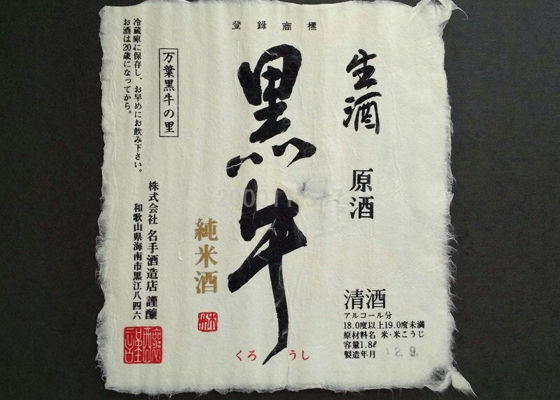 登録商標
生酒
原酒
黒牛
くろうし
純米酒
万葉黒牛の里
冷蔵庫に保存し、お早めにお飲み下さい。
お酒は20歳になってから。
株式会社 名手酒造店 謹醸
和歌山県海南市黒江八四六
清酒
アルコール分
18.0度以上19.0度未満
原材料名 米・米こうじ
容量1.8ℓ
製造年月 12.9.